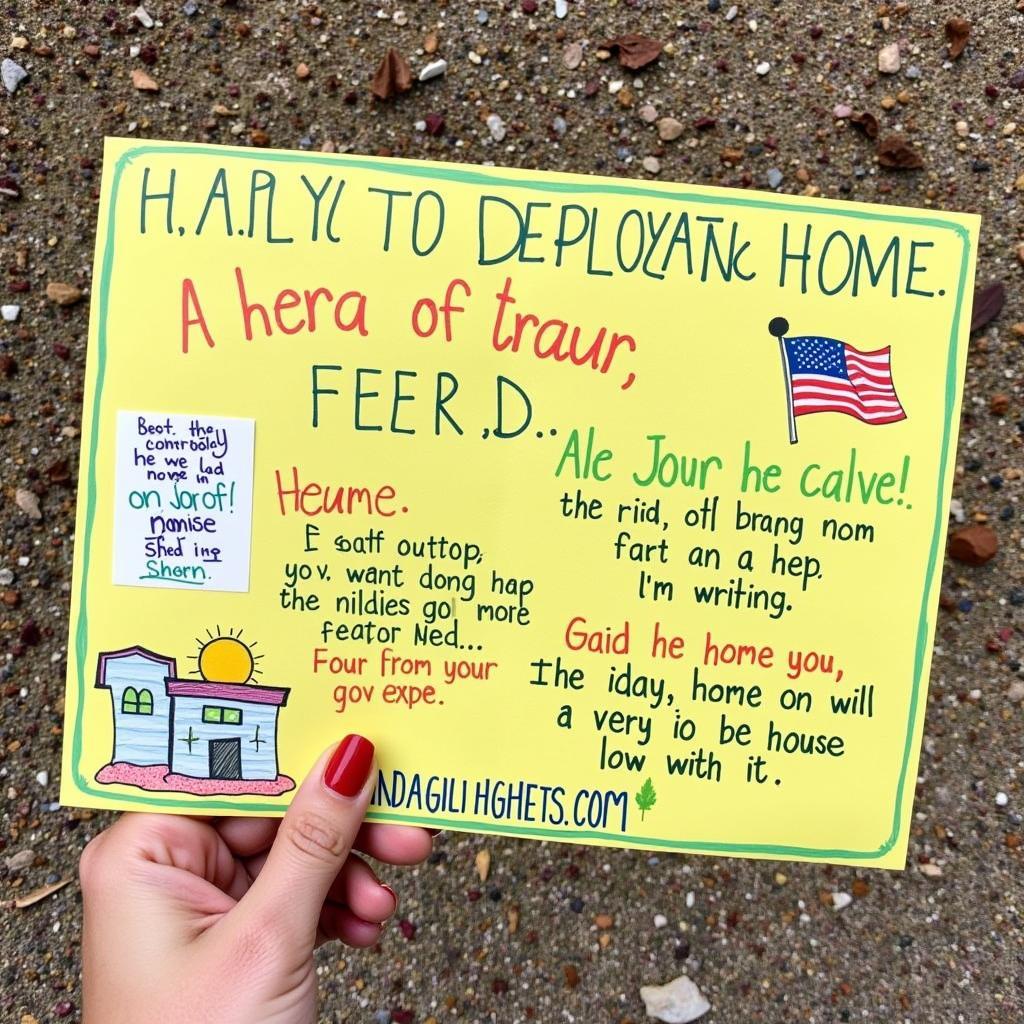 H.A.PLY( TO DEPLOYATNc HOME.
A hera of traur,
FEER,D..
Beot. they
controolay
he we lad
nove in
on Jorof!
npmise
Shed ing
Shorn.
Heume.
E soaff outtop,
yov. want dong hap
the nildies gol more
feator Ned...
Four from your
gov expe.
Ale Jour he calve!.
the riid, otl brang nom
fart an a hep.
I'm writing.
Gaid he home you,
Ihe iday, home on will
a very io be house
low with it.
NDAGILIHGHETS.COM